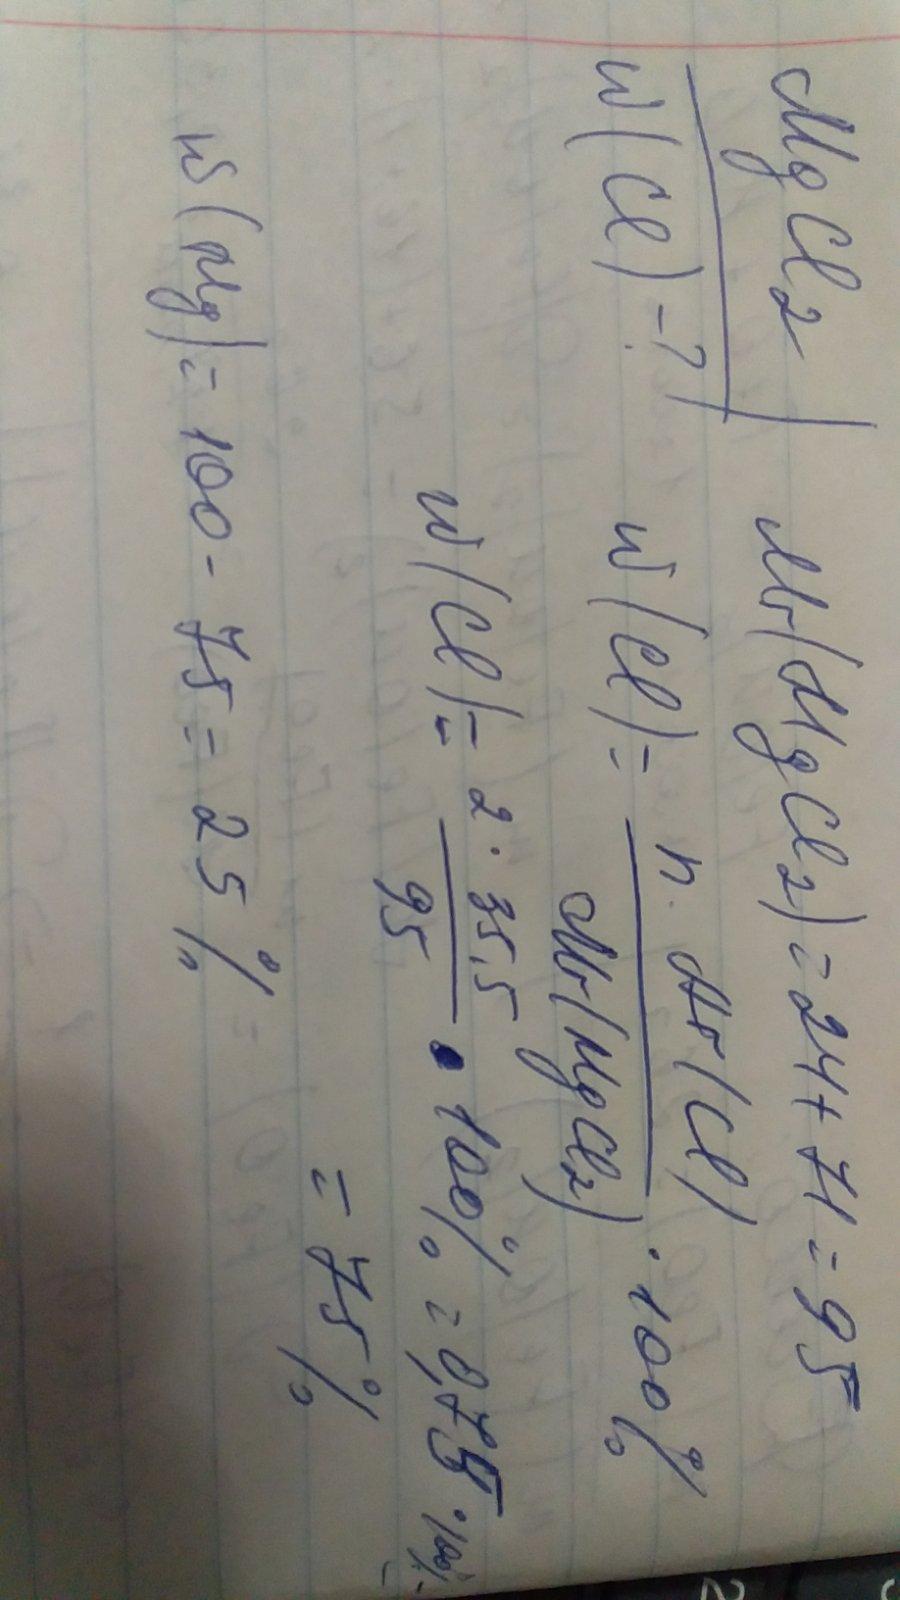 MgCl2 Mr(MgCl2) = 24 + 71 = 95
w(Cl) - ? w(Cl) = n · Ar(Cl) / Mr(MgCl2) · 100%
w(Cl) = 2 · 35,5 / 95 · 100% = 0,75 · 100% =
= 75%
w(Mg) = 100 - 75 = 25%
2